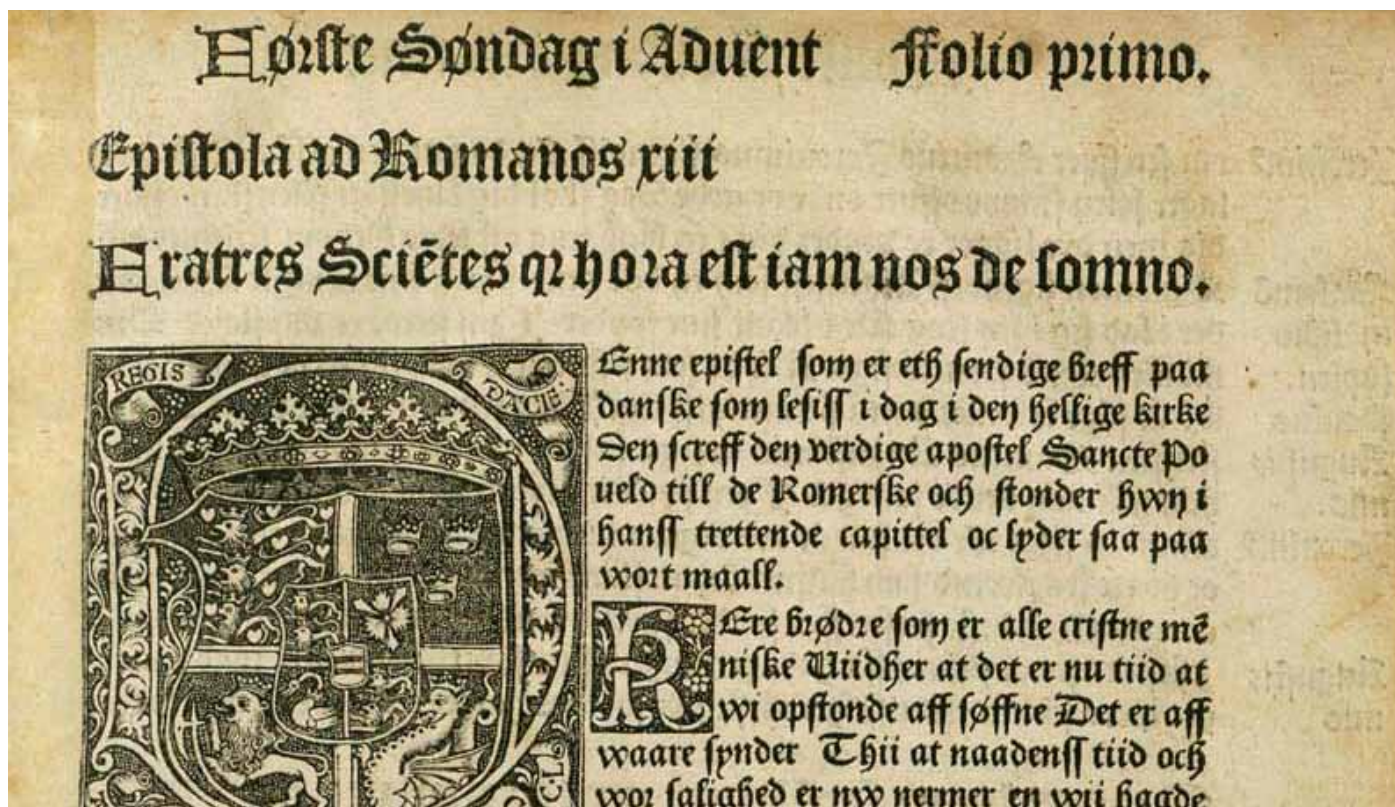 Første Søndag i Aduent Ffolio primo.
Epistola ad Romanos xiii
Fratres Sciẽtes qꝛ hora est iam nos de somno.
REGIS
DACIE:
Enne epistel som er eth sendige breff paa
danske som lesiss i dag i den hellige kirke
Den screff den verdige apostel Sancte Po
ueld till de Romerske och stonder hwn i
hanss trettende capittel oc lyder saa paa
wort maall.
KEre brødre som er alle cristne mẽ
niske Uiidher at det er nu tiid at
wi opstonde aff søffne Det er aff
waare synder Thii at naadenss tiid och
wor salighed er nw nermer en wii hagde